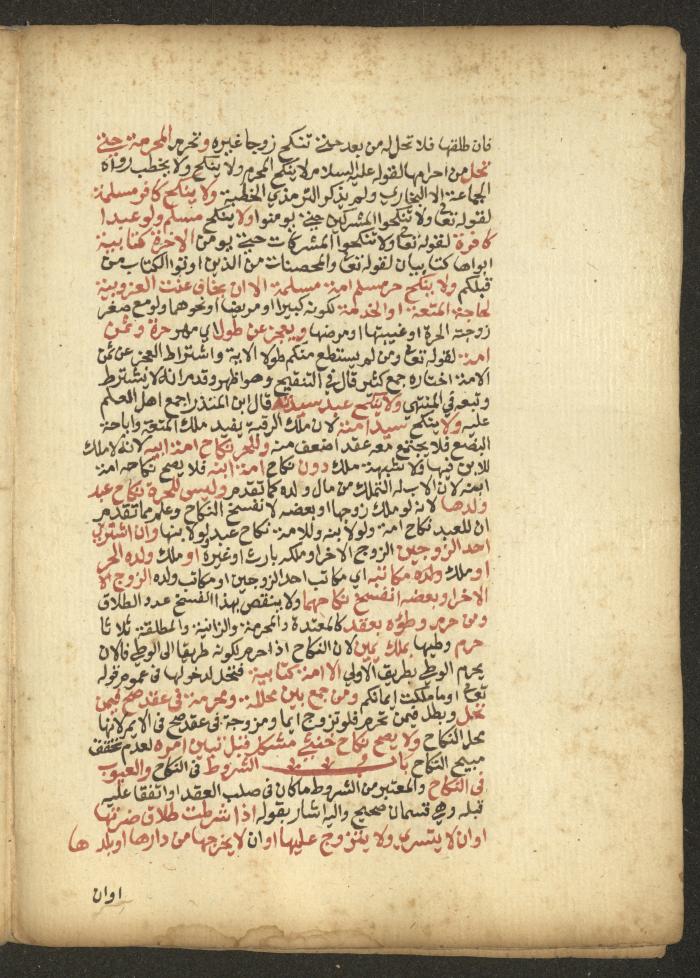 فان طلقها فلا تحل له من بعد حتى تنكح زوجا غيره وتحرم المحرمة حتى
تحل من احرامها لقوله عليه السلام لا ينكح المحرم ولا ينكح ولا يخطب رواه
الجماعة الا البخاري ولم يذكر الترمذي الخطبة ولا ينكح كافر مسلمة
لقوله تعالى ولا تنكحوا المشركين حتى يومنوا ولا ينكح مسلم ولو عبدا
كافرة لقوله تعالى ولا تنكحوا المشركات حتى يومن الا حرة كتابية
ابواها كتابيان لقوله تعالى والمحصنات من الذين اوتوا الكتاب من
قبلكم ولا ينكح حر مسلم امة مسلمة الا ان يخاف عنت العزوبية
لحاجة المتعة او الخدمة لكونه كبيرا او مريضا او نحوهما ولو مع صغر
زوجته الحرة او غيبتها او مرضها ويعجز عن طول اي مهر حرة وثمن
امة لقوله تعالى ومن لم يستطع منكم طولا الاية واشتراط العجز عن ثمن
الامة اختاره جمع كثير قال في التنقيح وهو اظهر وقدم انه لا يشترط
وتبعه في المنتهى ولا ينكح عبد سيدته قال ابن المنذر اجمع اهل العلم
عليه ولا ينكح سيد امته لان ملك الرقبة يفيد ملك المنفعة واباحة
البضع فلا يجتمع معه عقد اضعف منه وللحر نكاح امة ابيه لانه لا ملك
للابن فيها فلا شبهة ملك دون نكاح امة ابنه فلا يصح نكاحه امة
ابنه لان الاب له التملك من مال ولده كما تقدم وليس للحرة نكاح عبد
ولدها لانه لو ملك زوجها او بعضه لانفسخ النكاح وعلم مما تقدم
ان للعبد نكاح امة ولو لابنه وللامة نكاح عبد ولو لابنها وان اشترى
احد الزوجين الزوج الاخر او ملكه بارث او غيره او ملك ولده الحر
او ملك ولده مكاتبه اي مكاتب احد الزوجين او مكاتب ولده الزوج الا
الاخر او بعضه انفسخ نكاحهما ولا ينقص بهذا الفسخ عدد الطلاق
ومن حرم وطؤه بعقد كالمعتدة والمحرمة والزانية والمطلقة ثلاثا
حرم وطيها بملك يمين لان النكاح اذا حرم لكونه طريقا الى الوطي فلان
يحرم الوطي بطريق الاولى الا امة كتابية فتحل لدخولها في عموم قوله
تعالى او ما ملكت ايمانكم ومن جمع بين محللة ومحرمة في عقد صح فيمن
تحل وبطل فيمن تحرم فلو تزوج ايما ومزوجة في عقد صح في الايم لانها
محل النكاح ولا يصح نكاح خنثى مشكل قبل تبين امره لعدم تحقق
مبيح النكاح باب الشروط في النكاح والعيوب
في النكاح والمعتبر من الشروط ما كان في صلب العقد او اتفقا عليه
قبله وهي قسمان صحيح واليه اشار بقوله اذا شرطت طلاق ضرتها
او ان لا يتسرى ولا يتزوج عليها او ان لا يخرجها من دارها او بلدها
اوان